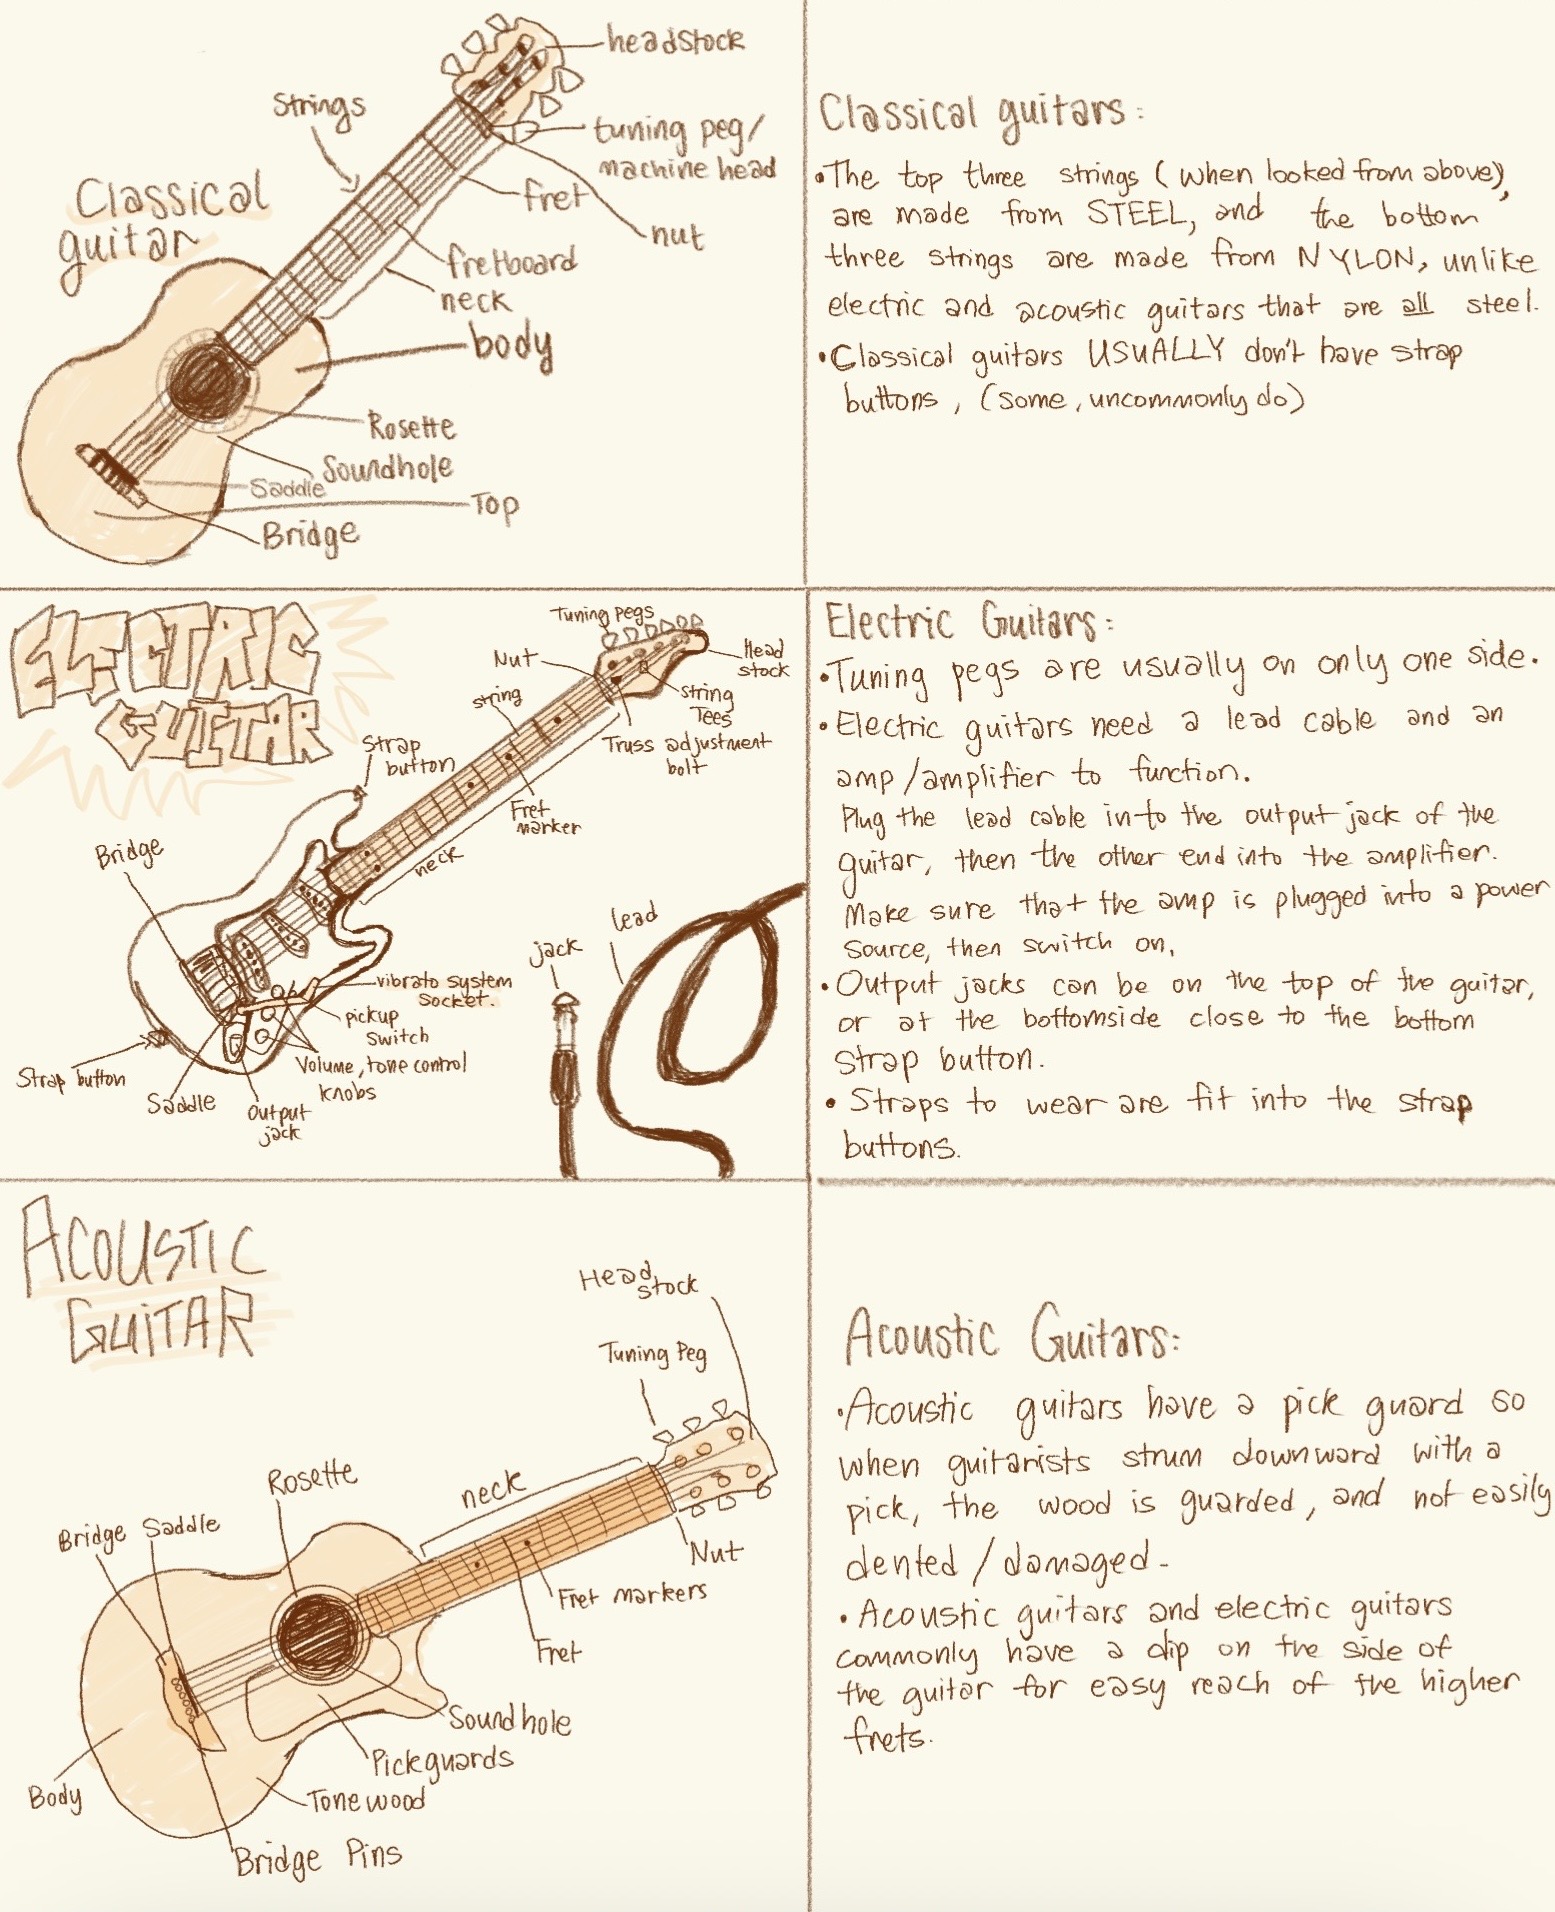 headstock
Strings
tuning peg/
machine head
Classical
guitar
fret
nut
fretboard
neck
body
Rosette
Soundhole
Saddle
Top
Bridge
Classical guitars:
•The top three strings (when looked from above),
are made from STEEL, and the bottom
three strings are made from NYLON, unlike
electric and acoustic guitars that are all steel.
•Classical guitars USUALLY don't have strap
buttons, (some, uncommonly do)
ELECTRIC
GUITAR
Tuning Pegs
Nut
Head
stock
string
string
Tees
Strap
button
Truss adjustment
bolt
Fret
marker
Bridge
neck
lead
jack
vibrato system
socket.
pickup
switch
Volume, tone control
knobs
Strap button
Saddle
Output
jack
Electric Guitars:
•Tuning pegs are usually on only one side.
•Electric guitars need a lead cable and an
amp/amplifier to function.
Plug the lead cable into the output jack of the
guitar, then the other end into the amplifier.
Make sure that the amp is plugged into a power
source, then switch on,
•Output jacks can be on the top of the guitar,
or at the bottomside close to the bottom
strap button.
• Straps to wear are fit into the strap
buttons.
ACOUSTIC
GUITAR
Head
stock
Tuning Peg
Rosette
neck
Bridge Saddle
Nut
Fret markers
Fret
Soundhole
Pickguards
Body
Tonewood
Bridge Pins
Acoustic Guitars:
•Acoustic guitars have a pick guard so
when guitarists strum downward with a
pick, the wood is guarded, and not easily
dented / damaged-
•Acoustic guitars and electric guitars
commonly have a dip on the side of
the guitar for easy reach of the higher
frets.